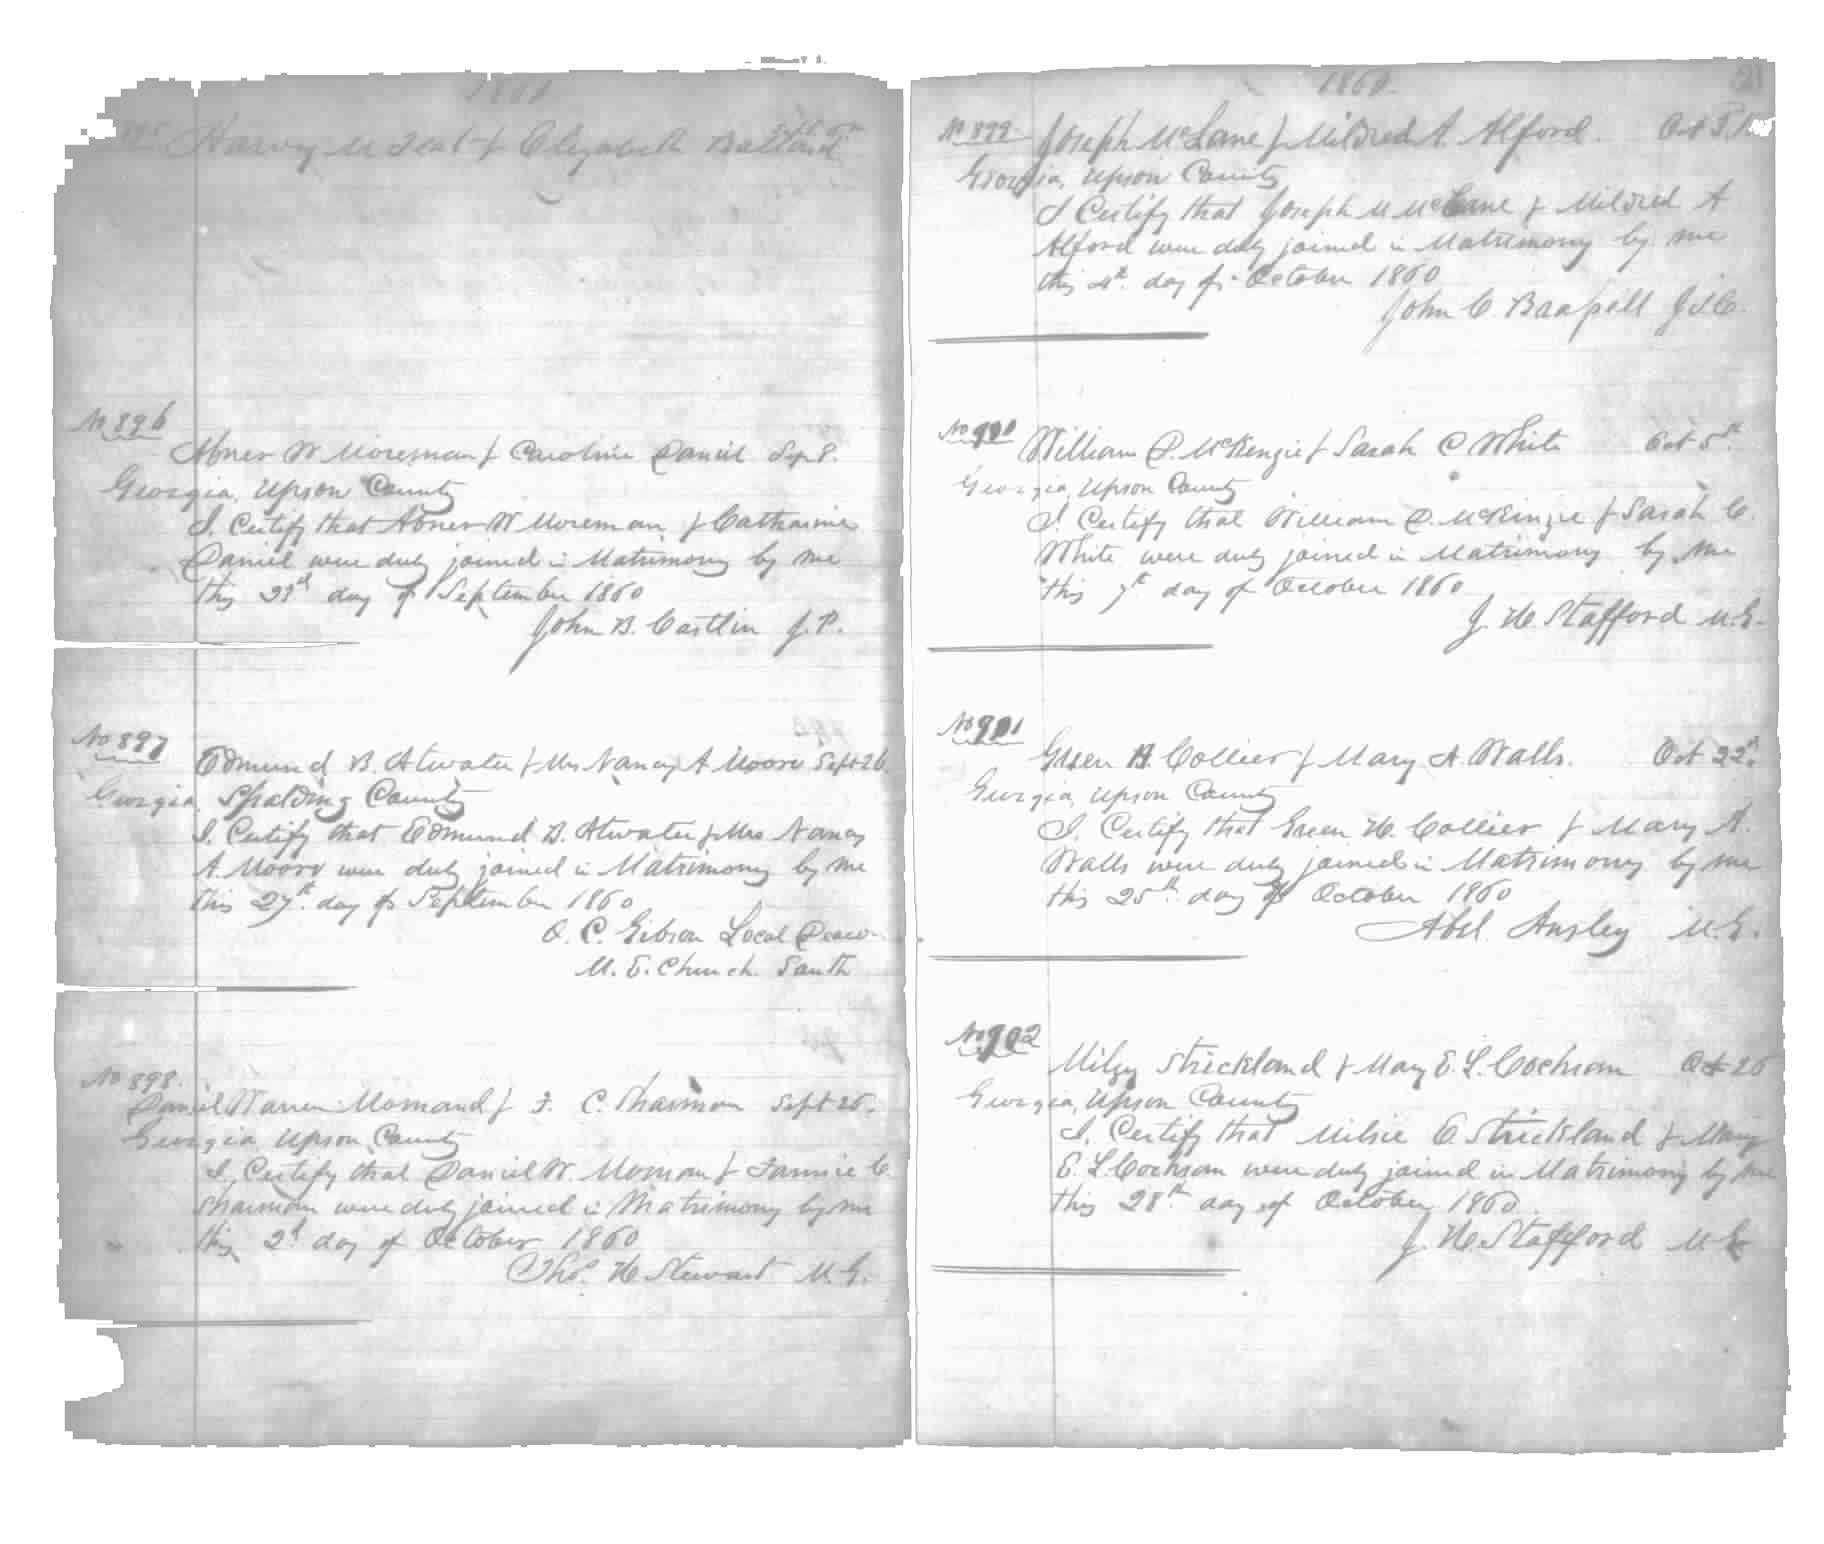 1860
895 Harvey M Teat & Elizabeth Ballard Sept 6th
No 896
Abner W Moreman & Caroline Daniel Sep 8.
Georgia, Upson County
I. Certify that Abner W Moreman & Catharine
Daniel were duly joined in Matrimony by me
this 23d day of September 1860
John B. Castlin J.P.
No 897
Edmund B. Atwater & Mrs Nancy A Moore Sept 26
Georgia, Spalding County
I. Certify that Edmund B. Atwater & Mrs Nancy
A. Moore were duly joined in Matrimony by me
this 27th day of September 1860
O. C. Gibson Local Deacon
M. E. Church South
No 898.
Daniel Warren Momand & F. C. Sharman Sept 25.
Georgia Upson County
I, Certify that Daniel W. Moman & Fannie C.
Sharman were duly joined in Matrimony by me
this 2d day of October 1860
Thos. H Stewart M. G.
1860
No 899 Joseph McLane & Mildred A. Alford. Oct 3,
Georgia, Upson County
I Certify that Joseph M McLane & Mildred A
Alford were duly joined in Matrimony by me
this 4th day of October 1860
John C Braspell J.I.C.
No 900
William P. McKenzie & Sarah C White Oct 5th
Georgia, Upson County
I. Certify that William P. McKinzie & Sarah C.
White were duly joined in Matrimony by me
this 7th day of October 1860
J. H. Stafford M.G.
No 901
Green H. Collier & Mary A. Walls. Oct 22d
Georgia, Upson County
I. Certify that Green H. Collier & Mary A.
Walls were duly joined in Matrimony by me
this 25th day of October 1860
Abel Ansley M. G.
No 902
Milzy Strickland & Mary E. L. Cochran Oct 26
Georgia, Upson County
I. Certify that Milsie C. Strickland & Mary
E. L. Cochran were duly joined in Matrimony by me
this 28th day of October 1860.
J. H. Stafford M G